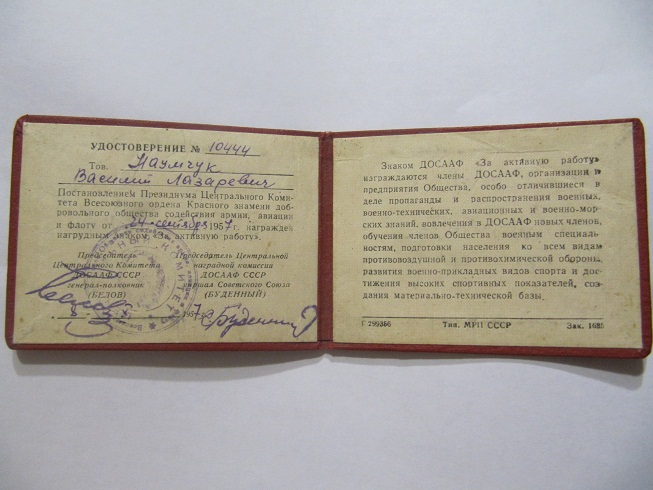 УДОСТОВЕРЕНИЕ № 10444
Тов. Наумчук
Василий Лазаревич
Постановлением Президиума Центрального Коми-
тета Всесоюзного ордена Красного знамени доб-
ровольного общества содействия армии, авиации
и флоту от 24 сентября 1957 г. награжден
нагрудным знаком «За активную работу».
Председатель
Центрального Комитета
ДОСААФ СССР
генерал-полковник
(БЕЛОВ)
Председатель Центральной
наградной комиссии
ДОСААФ СССР
маршал Советского Союза
(БУДЕННЫЙ)
1957 г. С. Буденный
Знаком ДОСААФ «За активную работу»
награждаются члены ДОСААФ, организации и
предприятия Общества, особо отличившиеся в
деле пропаганды и распространения военных,
военно-технических, авиационных и военно-мор-
ских знаний, вовлечения в ДОСААФ новых членов,
обучения членов Общества военным специаль-
ностям, подготовки населения ко всем видам
противовоздушной и противохимической обороны,
развития военно-прикладных видов спорта и дос-
тижения высоких спортивных показателей, соз-
дания материально-технической базы.
Г 799366 Тип. МРП СССР Зак. 1685